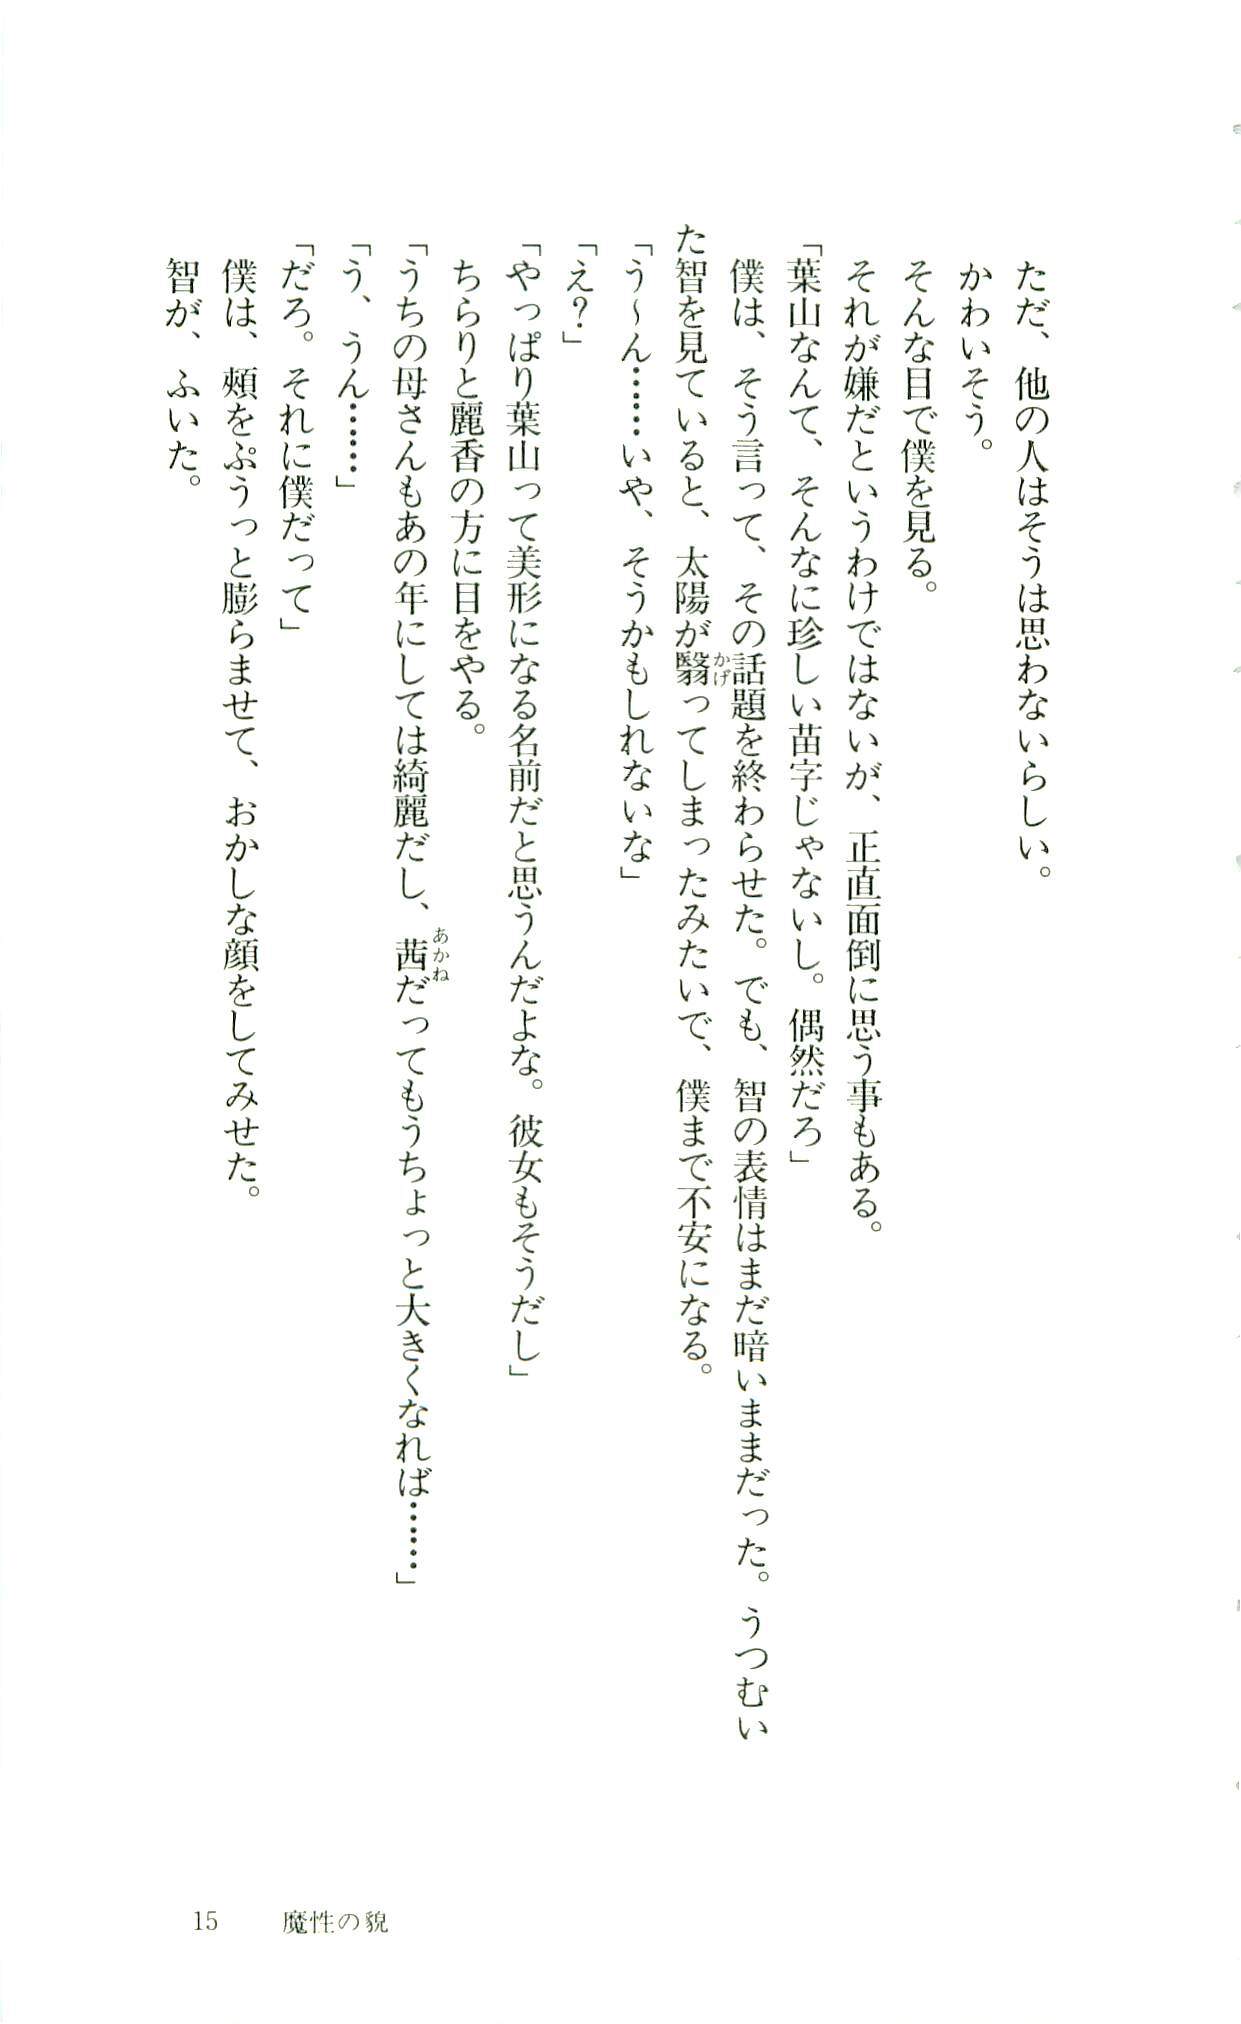 ただ、他の人はそうは思わないらしい。
かわいそう。
そんな目で僕を見る。
それが嫌だというわけではないが、正直面倒に思う事もある。
「葉山なんて、そんなに珍しい苗字じゃないし。偶然だろ」
僕は、そう言って、その話題を終わらせた。でも、智の表情はまだ暗いままだった。うつむい
た智を見ていると、太陽が翳ってしまったみたいで、僕まで不安になる。
かげ
「う～ん……いや、そうかもしれないな」
「え？」
「やっぱり葉山って美形になる名前だと思うんだよな。彼女もそうだし」
ちらりと麗香の方に目をやる。
「うちの母さんもあの年にしては綺麗だし、茜だってもうちょっと大きくなれば……」
あかね
「う、うん……」
「だろ。それに僕だって」
僕は、頰をぷうっと膨らませて、おかしな顔をしてみせた。
智が、ふいた。
15 魔性の貌